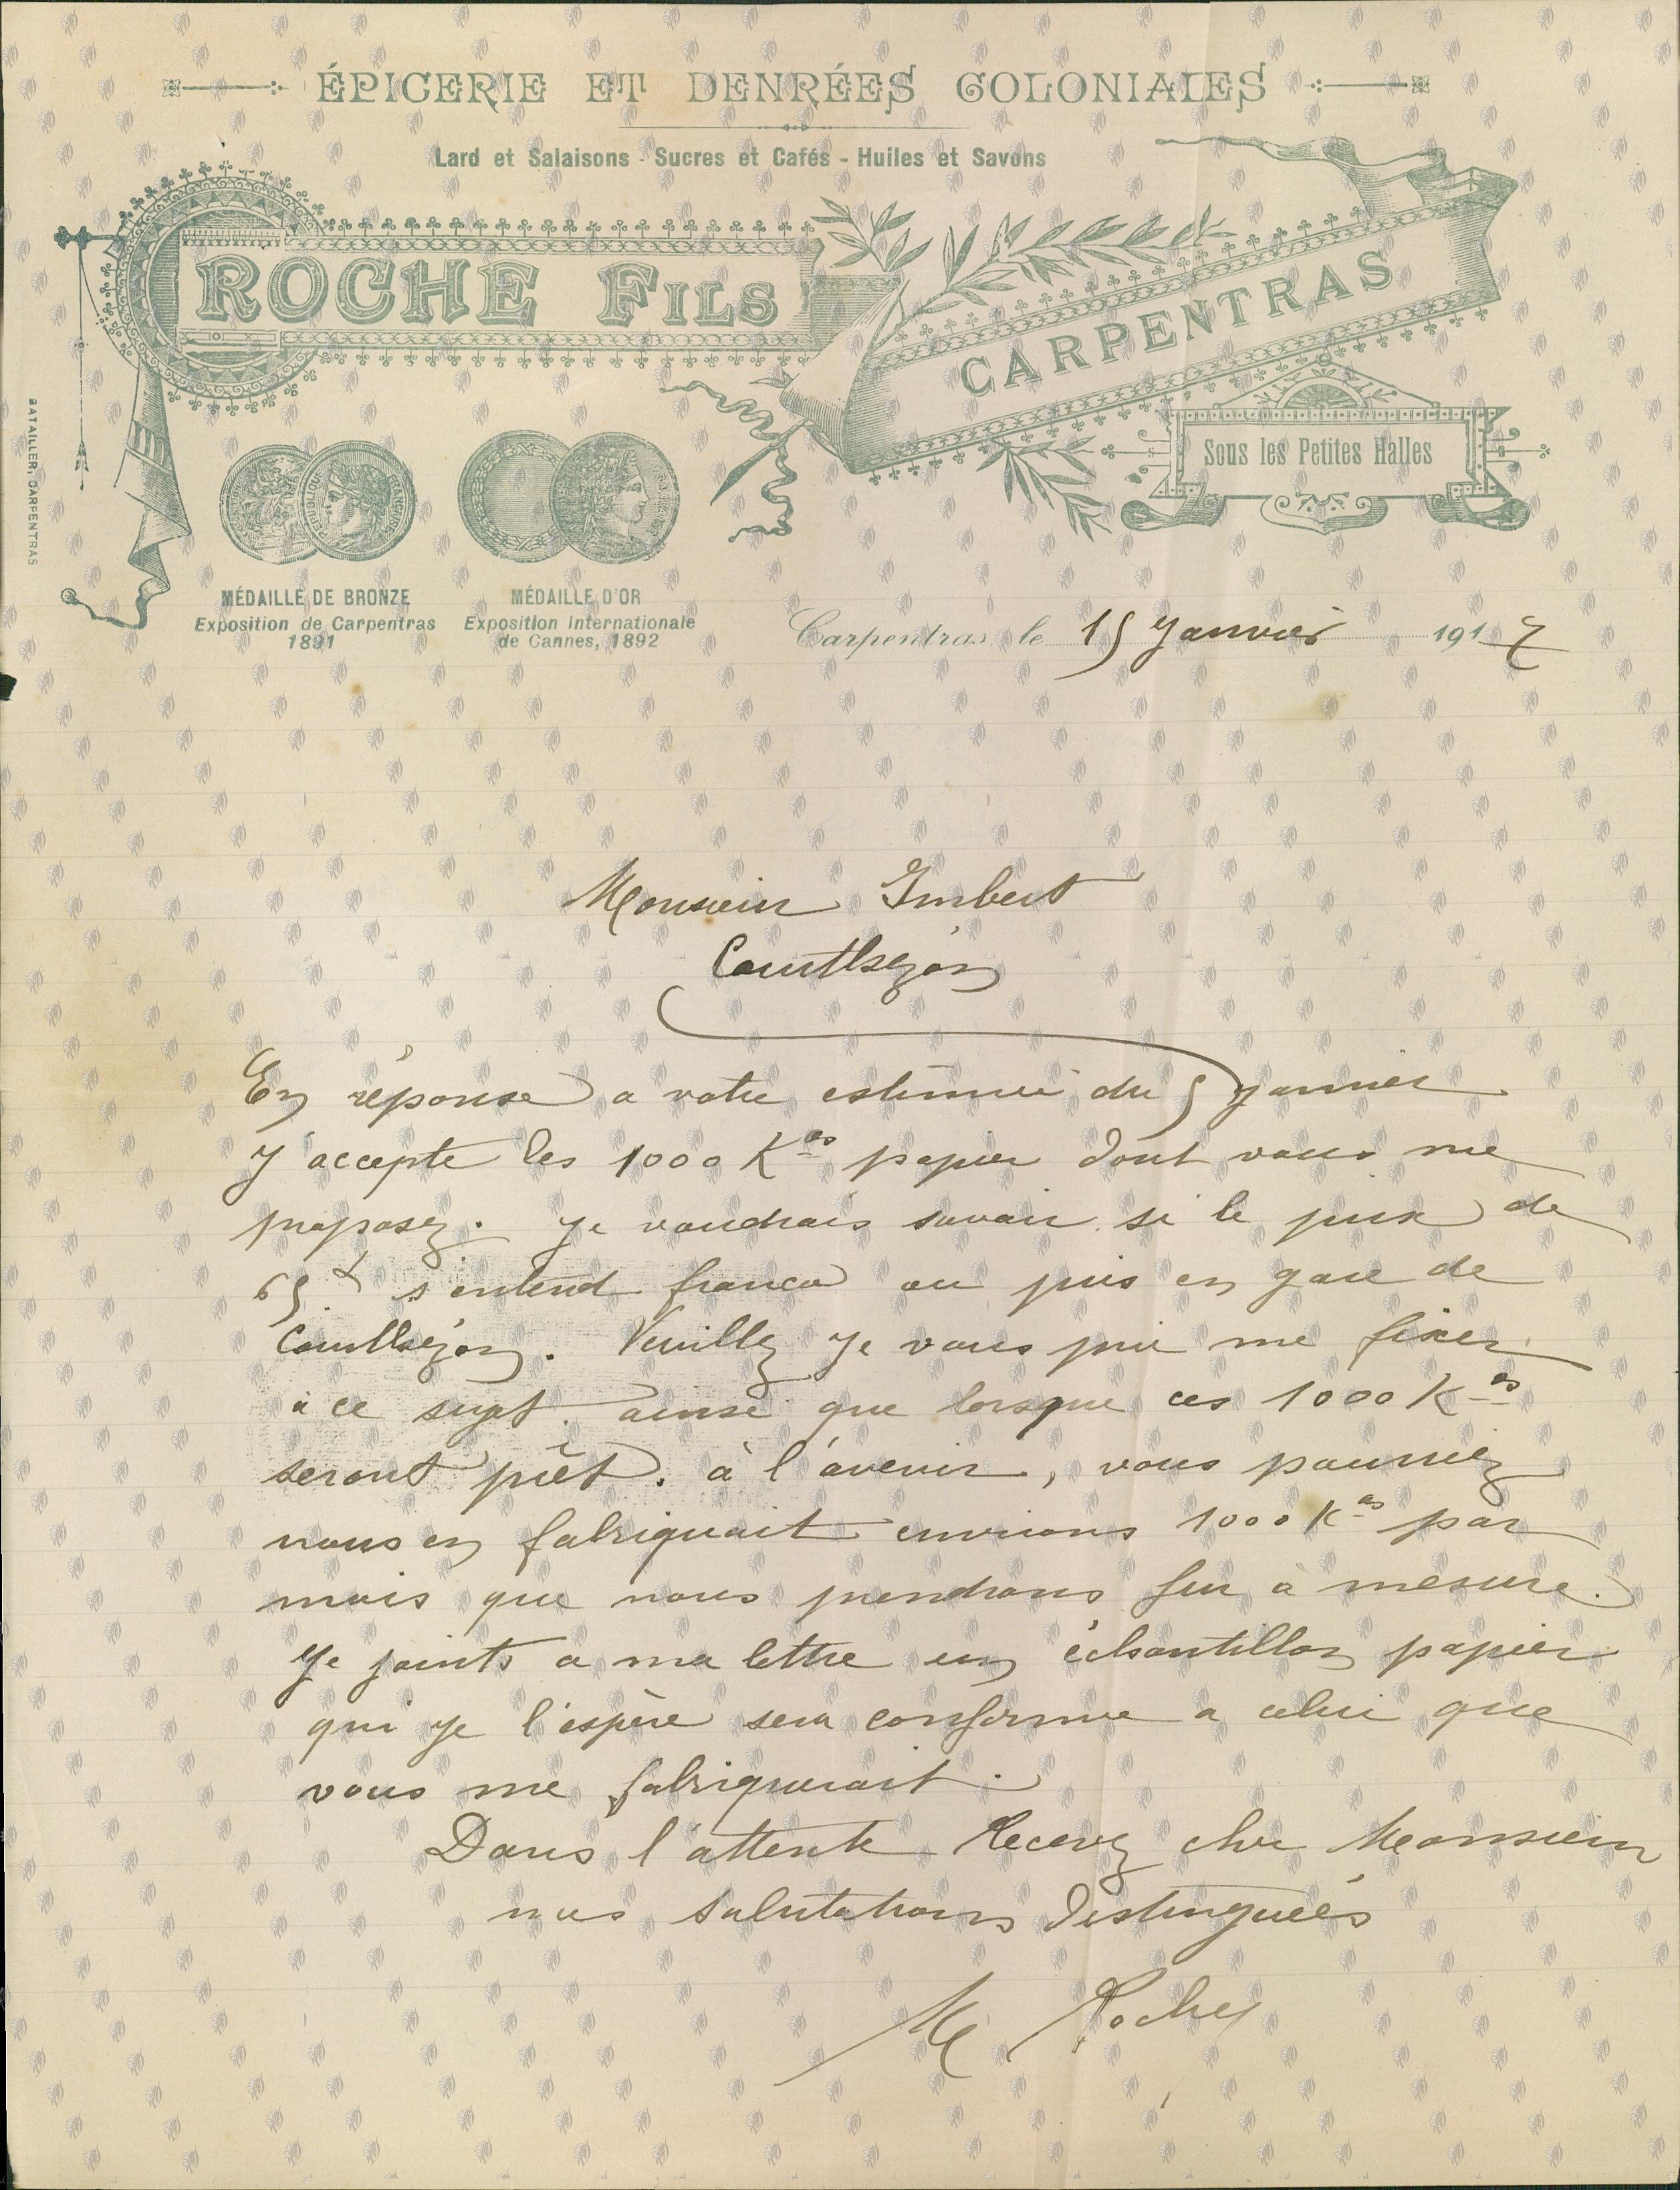 ÉPICERIE ET DENRÉES COLONIALES
Lard et Salaisons - Sucres et Cafés - Huiles et Savons
ROCHE FILS
CARPENTRAS
Sous les Petites Halles
BATAILLER, CARPENTRAS
MÉDAILLE DE BRONZE
Exposition de Carpentras
1891
MÉDAILLE D'OR
Exposition Internationale
de Cannes, 1892
Carpentras, le 15 Janvier 1917
Monsieur Imbert
Courthézon
En réponse a votre estimée du 5 Janvier
J'accepte les 1000 Kos papier dont vous me
proposez. Je voudrais savoir si le prix de
65 s'entend franco ou pris en gare de
Courthézon. Veuillez Je vous prie me fixer
à ce sujet ainsi que lorsque ces 1000 Kos
seront prêt. à l'avenir, vous pourriez
nous en fabriquait environs 1000 Kos par
mois que nous prendrons fur à mesure.
Je joints a ma lettre un échantillon papier
qui je l'espère sera conforme a celui que
vous me fabriquerait.
Dans l'attente Recevez cher Monsieur
mes salutations distinguées
M Roche